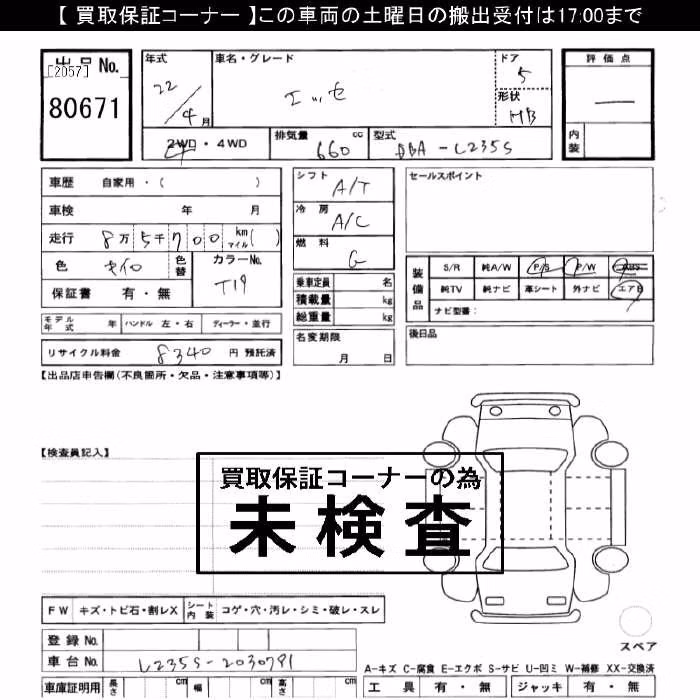 【 買取保証コーナー 】この車両の土曜日の搬出受付は17:00まで
出品No.
[2057]
80671
年式 22/4月
車名・グレード エッセ
ドア 5
形状 HB
評価点 —
内装
2WD・4WD
排気量 660 cc
型式 DBA-L235S
車歴 自家用・( )
車検 年 月
走行 8万5千700 km マイル( )
色 キイロ
色替
カラーNo. T19
保証書 有・無
モデル年式 年 ハンドル 左・右 ディーラー・並行
リサイクル料金 8340 円 預託済
シフト A/T
冷房 A/C
燃料 G
乗車定員 名
積載量 kg
総重量 kg
名変期限 月 日
セールスポイント
装備品
S/R 純A/W P/S P/W ABS
純TV 純ナビ 革シート 外ナビ エアB
ナビ型番:
後日品
【出品店申告欄(不良箇所・欠品・注意事項等)】
【検査員記入】
買取保証コーナーの為
未検査
FW キズ・トビ石・割レX シート内装 コゲ・穴・汚レ・シミ・破レ・スレ
スペア
登録No.
車台No. L235S-2030791
車庫証明用 長さ cm 幅 cm 高さ cm
A-キズ C-腐食 E-エクボ S-サビ U-凹ミ W-補修 XX-交換済
工具 有・無 ジャッキ 有・無